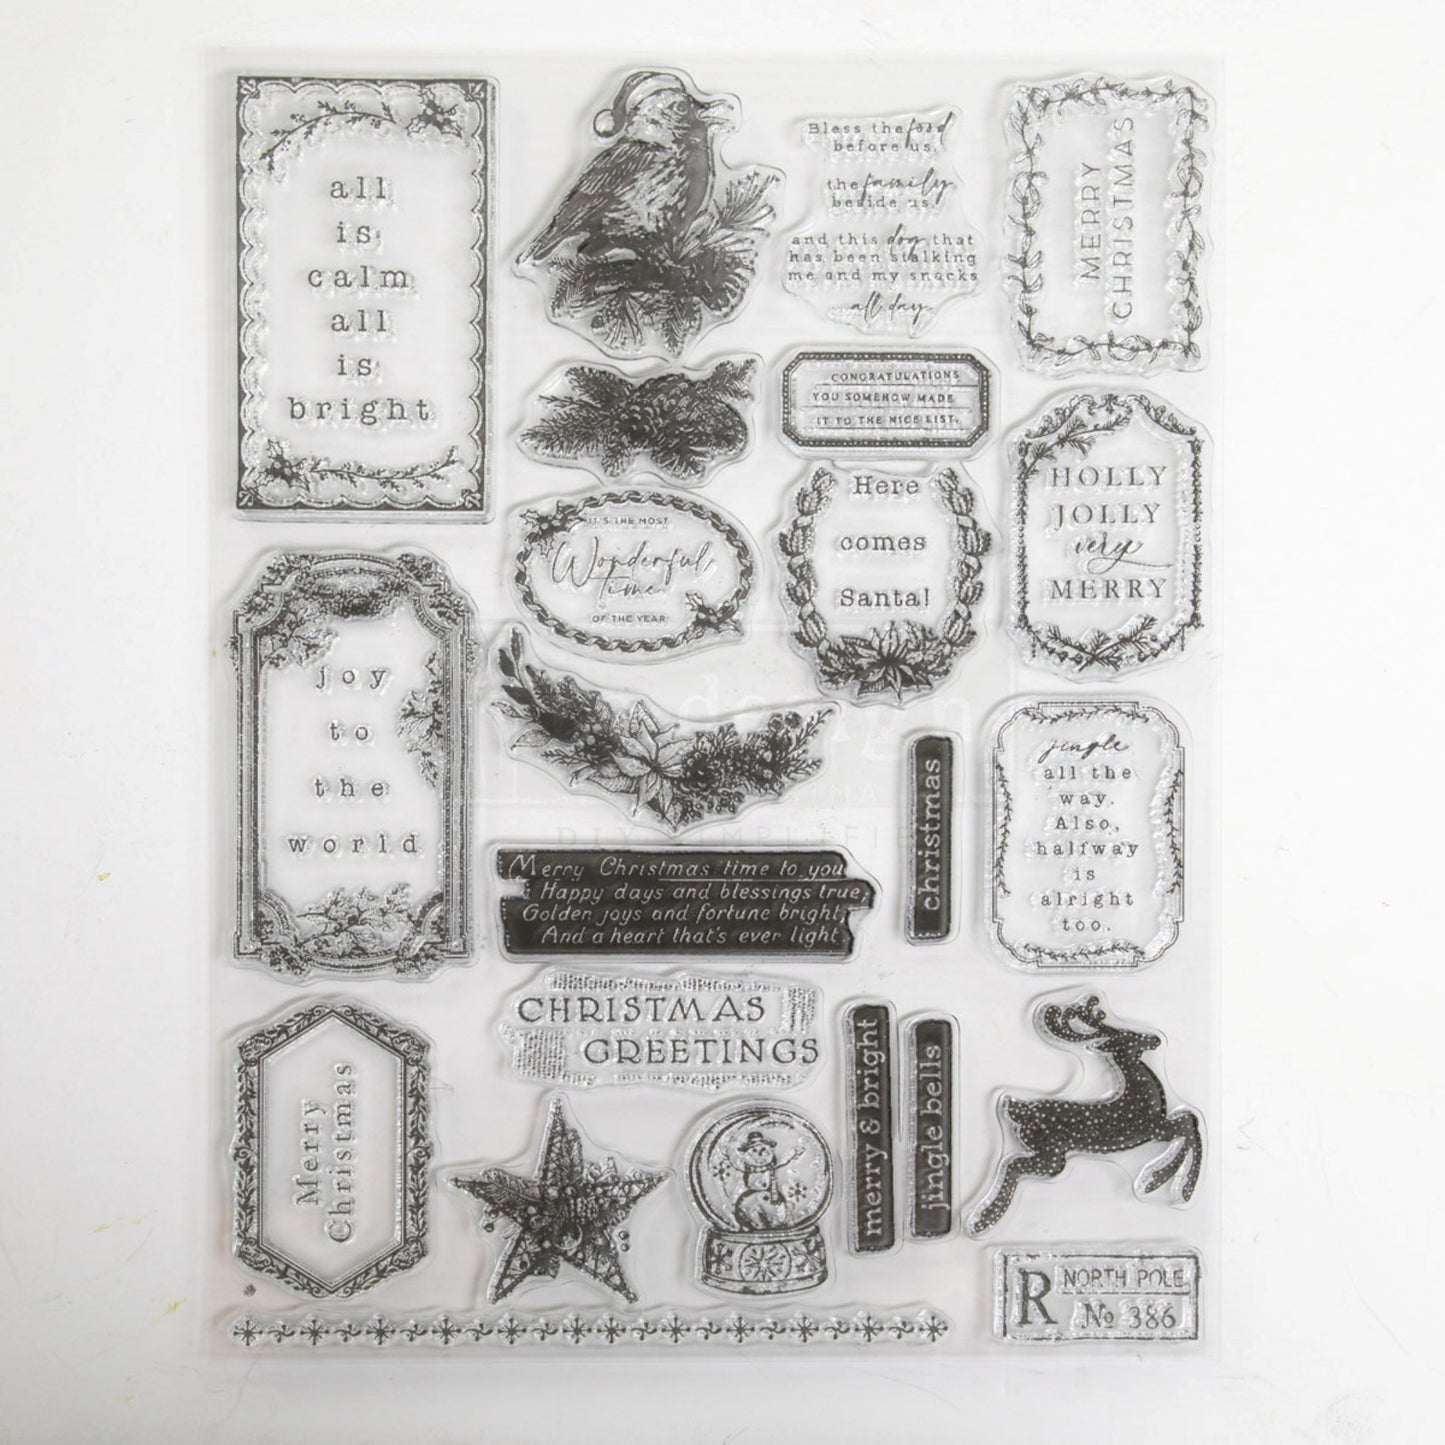 all
is
calm
all
is
bright
Bless the food
before us,
the family
beside us,
and this dog that
has been stalking
me and my snacks
all day.
MERRY
CHRISTMAS
CONGRATULATIONS
YOU SOMEHOW MADE
IT TO THE NICE LIST.
IT'S THE MOST
Wonderful
Time
OF THE YEAR
Here
comes
Santa!
HOLLY
JOLLY
very
MERRY
joy
to
the
world
design
DIY SIMPLIFIED
christmas
jingle
all the
way.
Also,
halfway
is
alright
too.
Merry Christmas time to you
Happy days and blessings true,
Golden joys and fortune bright,
And a heart that's ever light
CHRISTMAS
GREETINGS
Merry
Christmas
merry & bright
jingle bells
R NORTH POLE
№ 386